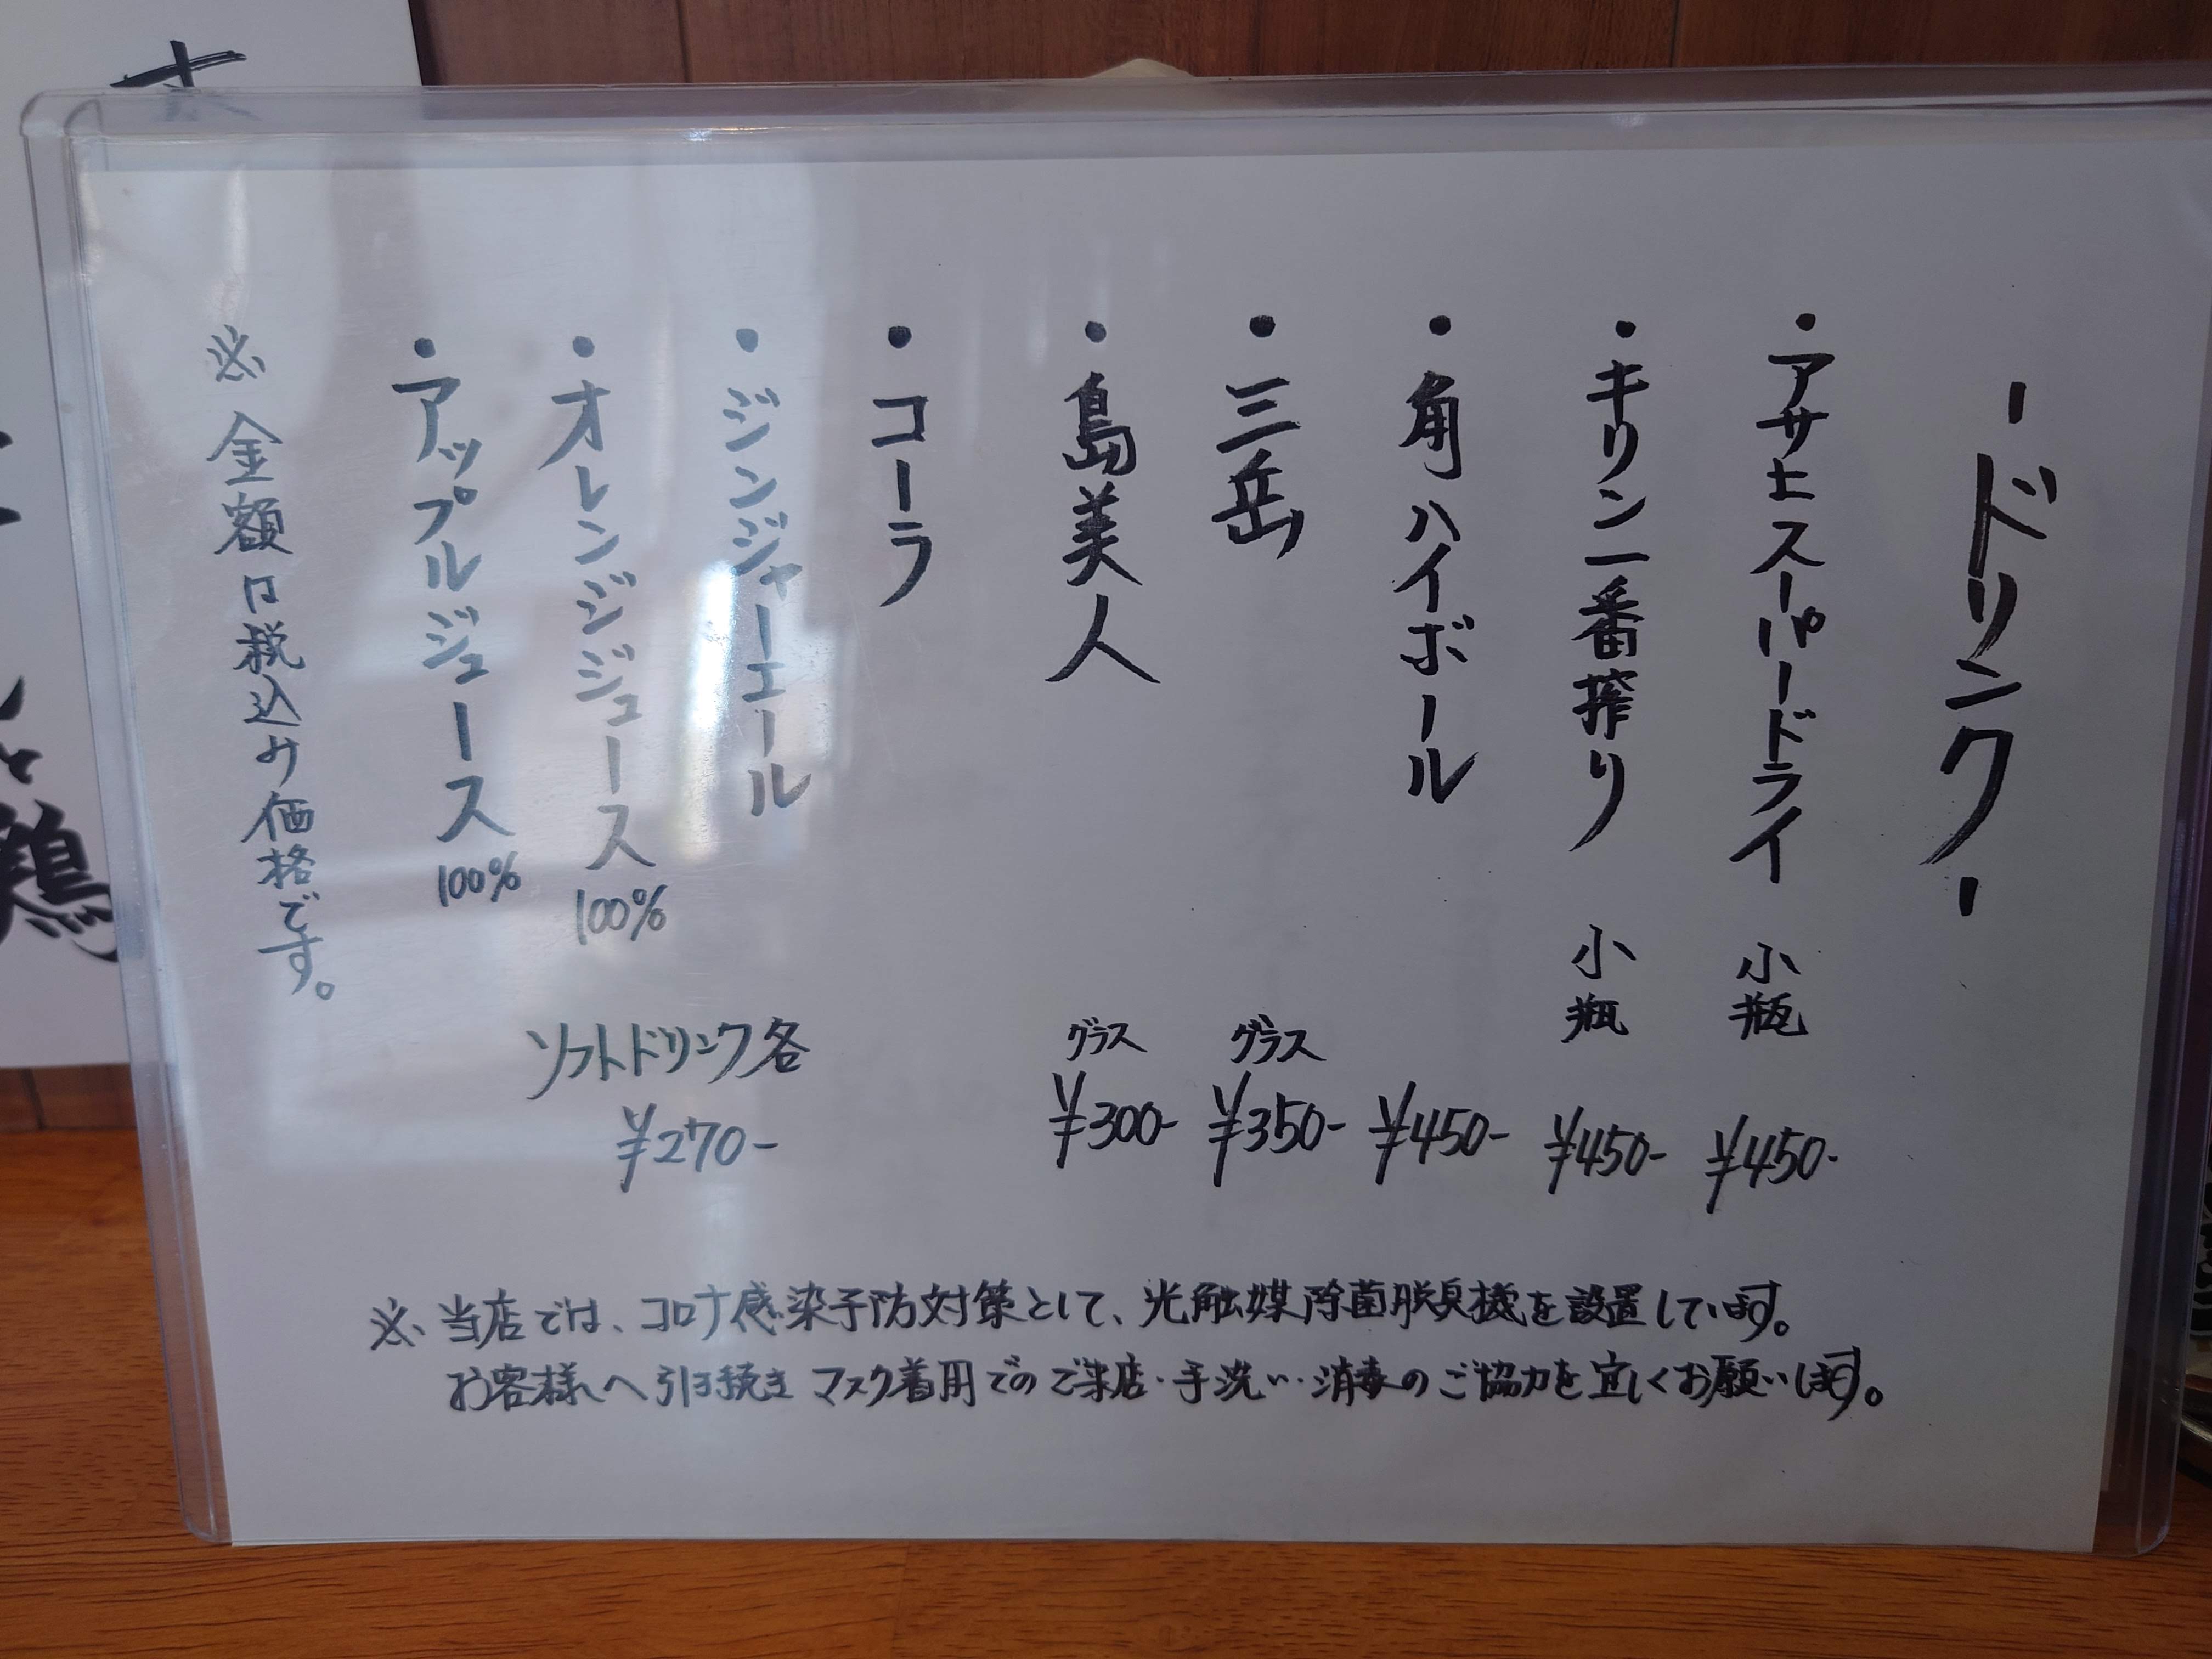 -ドリンク-
・アサヒスーパードライ 小瓶 ¥450-
・キリン一番搾り 小瓶 ¥450-
・角ハイボール ¥450-
・三岳 グラス ¥350-
・島美人 グラス ¥300-
・コーラ
・ジンジャーエール
・オレンジジュース 100%
・アップルジュース 100%
ソフトドリンク各
¥270-
※金額は税込み価格です。
※当店では、コロナ感染予防対策として、光触媒除菌脱臭機を設置しています。
お客様へ引き続きマスク着用でのご来店・手洗い・消毒のご協力を宜しくお願いします。
鶏